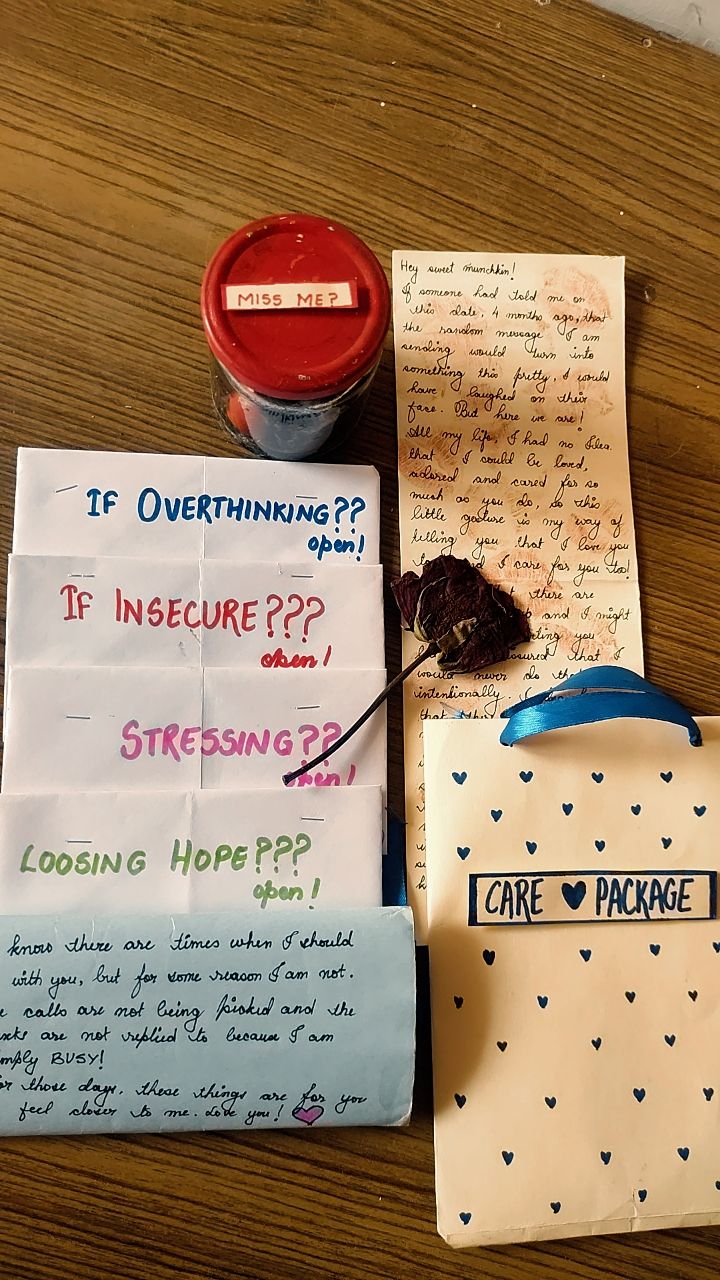 MISS ME?
Hey sweet munchkin!
If someone had told me on
this date, 4 months ago, that
the random message I am
sending would turn into
something this pretty, I would
have laughed on their
face. But here we are!
All my life, I had no idea
that I could be loved,
adored and cared for so
much as you do, so this
little gesture is my way of
telling you that I love you
and I care for you too!
there are
and I might
you
assured that I
would never do
intentionally. I
that
IF OVERTHINKING??
open!
IF INSECURE???
open!
STRESSING??
open!
LOOSING HOPE???
open!
know there are times when I should
with you, but for some reason I am not.
calls are not being picked and the
are not replied to because I am
BUSY!
those days, these things are for you
feel closer to me. Love you!
CARE PACKAGE